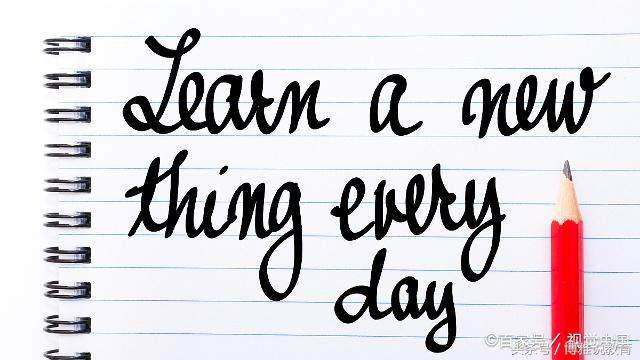 Learn a new
thing every
day
©百家号/视觉中国